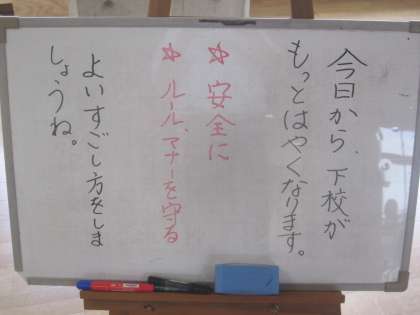 今日から、下校が
もっとはやくなります。
☆安全に
☆ルール、マナーを守る
よいすごし方をしま
しょうね。